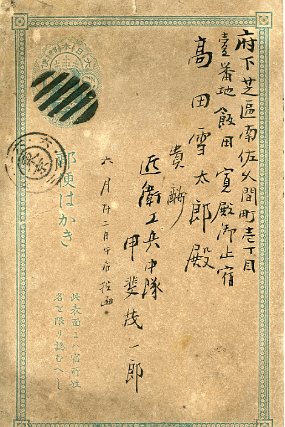 府下芝區南佐久間町壱丁目
壹番地飯田寛殿御止宿
高田雪太郎殿
貴酬
近衛工兵中隊
甲斐茂一郎
六月廿二日午前
郵便はかき
此表面エハ宿所姓
名を限り認むへし